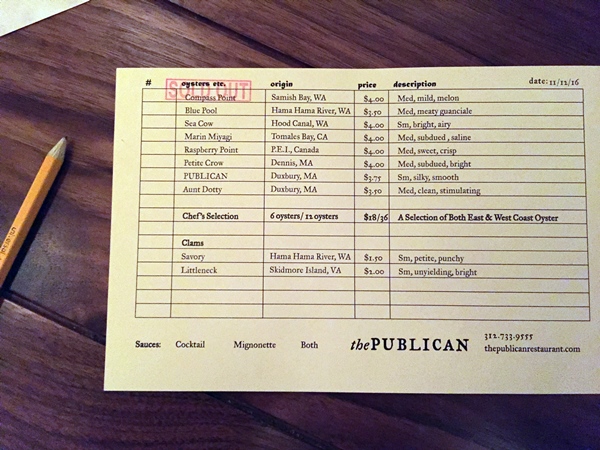 # oysters etc. origin price description date: 11/12/16
SOLD OUT
Compass Point Samish Bay, WA $4.00 Med, mild, melon
Blue Pool Hama Hama River, WA $3.50 Med, meaty guanciale
Sea Cow Hood Canal, WA $4.00 Sm, bright, airy
Marin Miyagi Tomales Bay, CA $4.00 Med, subdued , saline
Raspberry Point P.E.I., Canada $4.00 Med, sweet, crisp
Petite Crow Dennis, MA $4.00 Med, subdued, bright
PUBLICAN Duxbury, MA $3.75 Sm, silky, smooth
Aunt Dotty Duxbury, MA $3.50 Med, clean, stimulating
Chef's Selection 6 oysters/ 12 oysters $18/36 A Selection of Both East & West Coast Oyster
Clams
Savory Hama Hama River, WA $1.50 Sm, petite, punchy
Littleneck Skidmore Island, VA $2.00 Sm, unyielding, bright
Sauces: Cocktail Mignonette Both thePUBLICAN 312-733-9555
thepublicanrestaurant.com